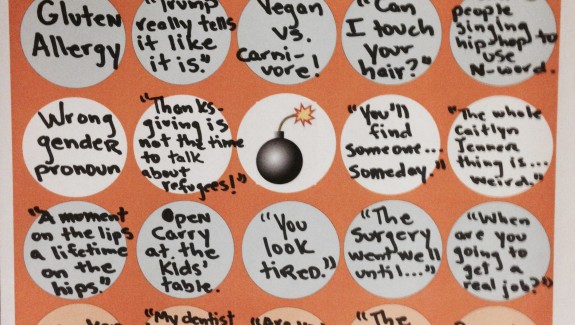 Gluten
Allergy
"Trump
really tells
it like
it is."
Vegan
vs.
Carni-
vore!
"Can
I touch
your
hair?"
people
singing
hip hop to
use
N-word.
Wrong
gender
pronoun
"Thanks-
giving is
not the time
to talk
about
refugees!"
"You'll
find
someone...
someday."
"The whole
Caitlyn
Jenner
thing is...
weird."
"A moment
on the lips
a lifetime
on the
hips."
Open
Carry
at the
kids'
table.
"You
look
tired."
"The
surgery
went well
until..."
"When
are you
going to
get a
real job?"
"My dentist
"The